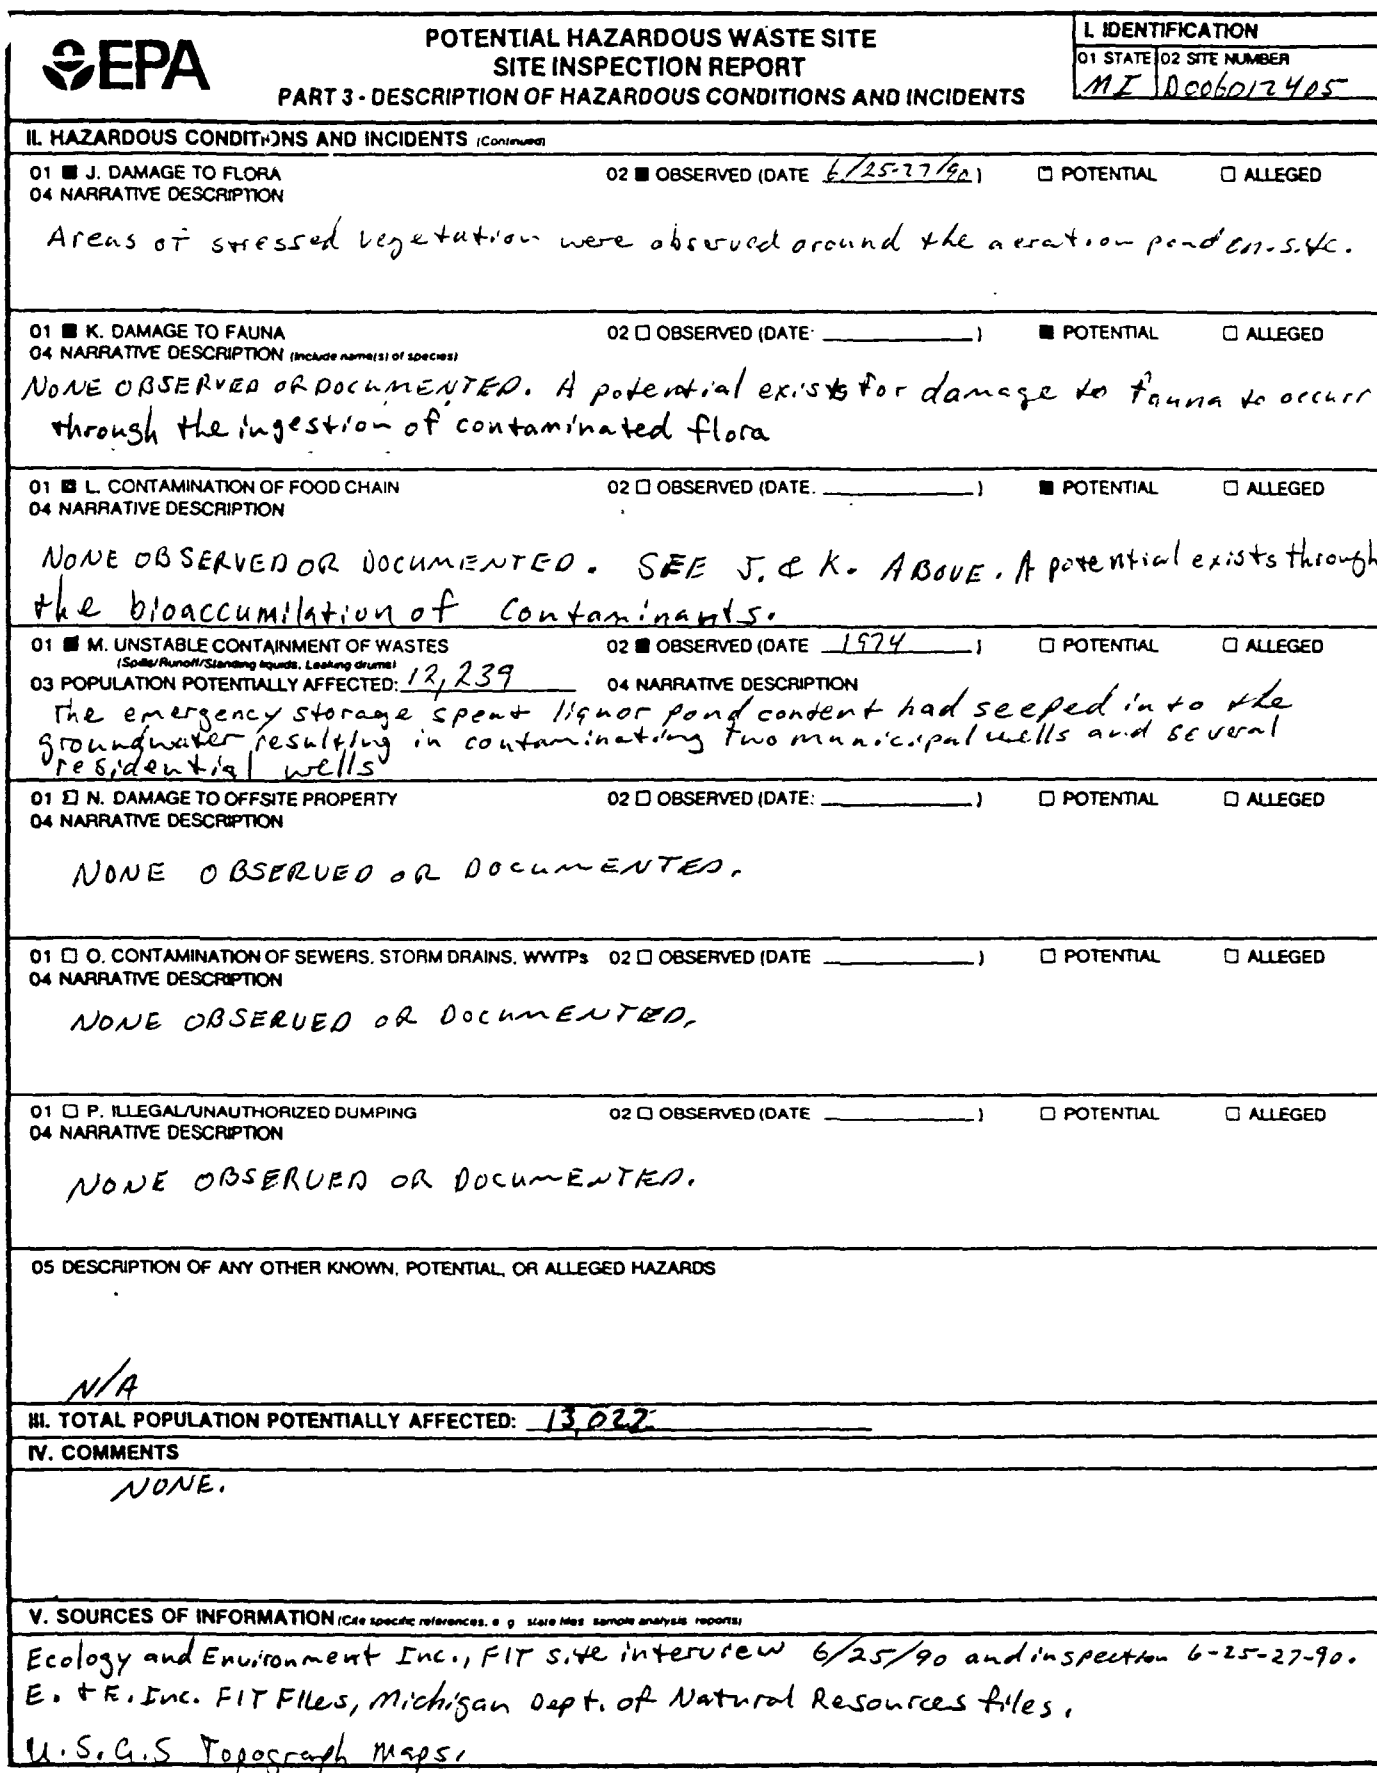 EPA
POTENTIAL HAZARDOUS WASTE SITE
SITE INSPECTION REPORT
PART 3 - DESCRIPTION OF HAZARDOUS CONDITIONS AND INCIDENTS
I. IDENTIFICATION
01 STATE 02 SITE NUMBER
MI D006012405
II. HAZARDOUS CONDITIONS AND INCIDENTS (Continued)
01 ■ J. DAMAGE TO FLORA 02 ■ OBSERVED (DATE 6/25-27/90) □ POTENTIAL □ ALLEGED
04 NARRATIVE DESCRIPTION
Areas of stressed vegetation were observed around the aeration pond on-site.
01 ■ K. DAMAGE TO FAUNA 02 □ OBSERVED (DATE: ) ■ POTENTIAL □ ALLEGED
04 NARRATIVE DESCRIPTION (Include name(s) of species)
NONE OBSERVED OR DOCUMENTED. A potential exists for damage to fauna to occurr
through the ingestion of contaminated flora
01 ■ L. CONTAMINATION OF FOOD CHAIN 02 □ OBSERVED (DATE. ) ■ POTENTIAL □ ALLEGED
04 NARRATIVE DESCRIPTION
NONE OBSERVED OR DOCUMENTED. SEE J. & K. ABOVE. A potential exists through
the bioaccumilation of contaminants.
01 ■ M. UNSTABLE CONTAINMENT OF WASTES 02 ■ OBSERVED (DATE 1974) □ POTENTIAL □ ALLEGED
(Spills/Runoff/Standing liquids, Leaking drums)
03 POPULATION POTENTIALLY AFFECTED: 12,239 04 NARRATIVE DESCRIPTION
The emergency storage spent liquor pond content had seeped in to the
groundwater resulting in contaminating two municipal wells and several
residential wells
01 □ N. DAMAGE TO OFFSITE PROPERTY 02 □ OBSERVED (DATE: ) □ POTENTIAL □ ALLEGED
04 NARRATIVE DESCRIPTION
NONE OBSERVED OR DOCUMENTED.
01 □ O. CONTAMINATION OF SEWERS, STORM DRAINS, WWTPs 02 □ OBSERVED (DATE ) □ POTENTIAL □ ALLEGED
04 NARRATIVE DESCRIPTION
NONE OBSERVED OR DOCUMENTED.
01 □ P. ILLEGAL/UNAUTHORIZED DUMPING 02 □ OBSERVED (DATE ) □ POTENTIAL □ ALLEGED
04 NARRATIVE DESCRIPTION
NONE OBSERVED OR DOCUMENTED.
05 DESCRIPTION OF ANY OTHER KNOWN, POTENTIAL, OR ALLEGED HAZARDS
N/A
III. TOTAL POPULATION POTENTIALLY AFFECTED: 13,022
IV. COMMENTS
NONE.
V. SOURCES OF INFORMATION (Cite specific references, e g state files sample analysis reports)
Ecology and Environment Inc., FIT site interview 6/25/90 and inspection 6-25-27-90.
E. + E. Inc. FIT Files, Michigan Dept. of Natural Resources files.
U.S.G.S Topograph Maps.